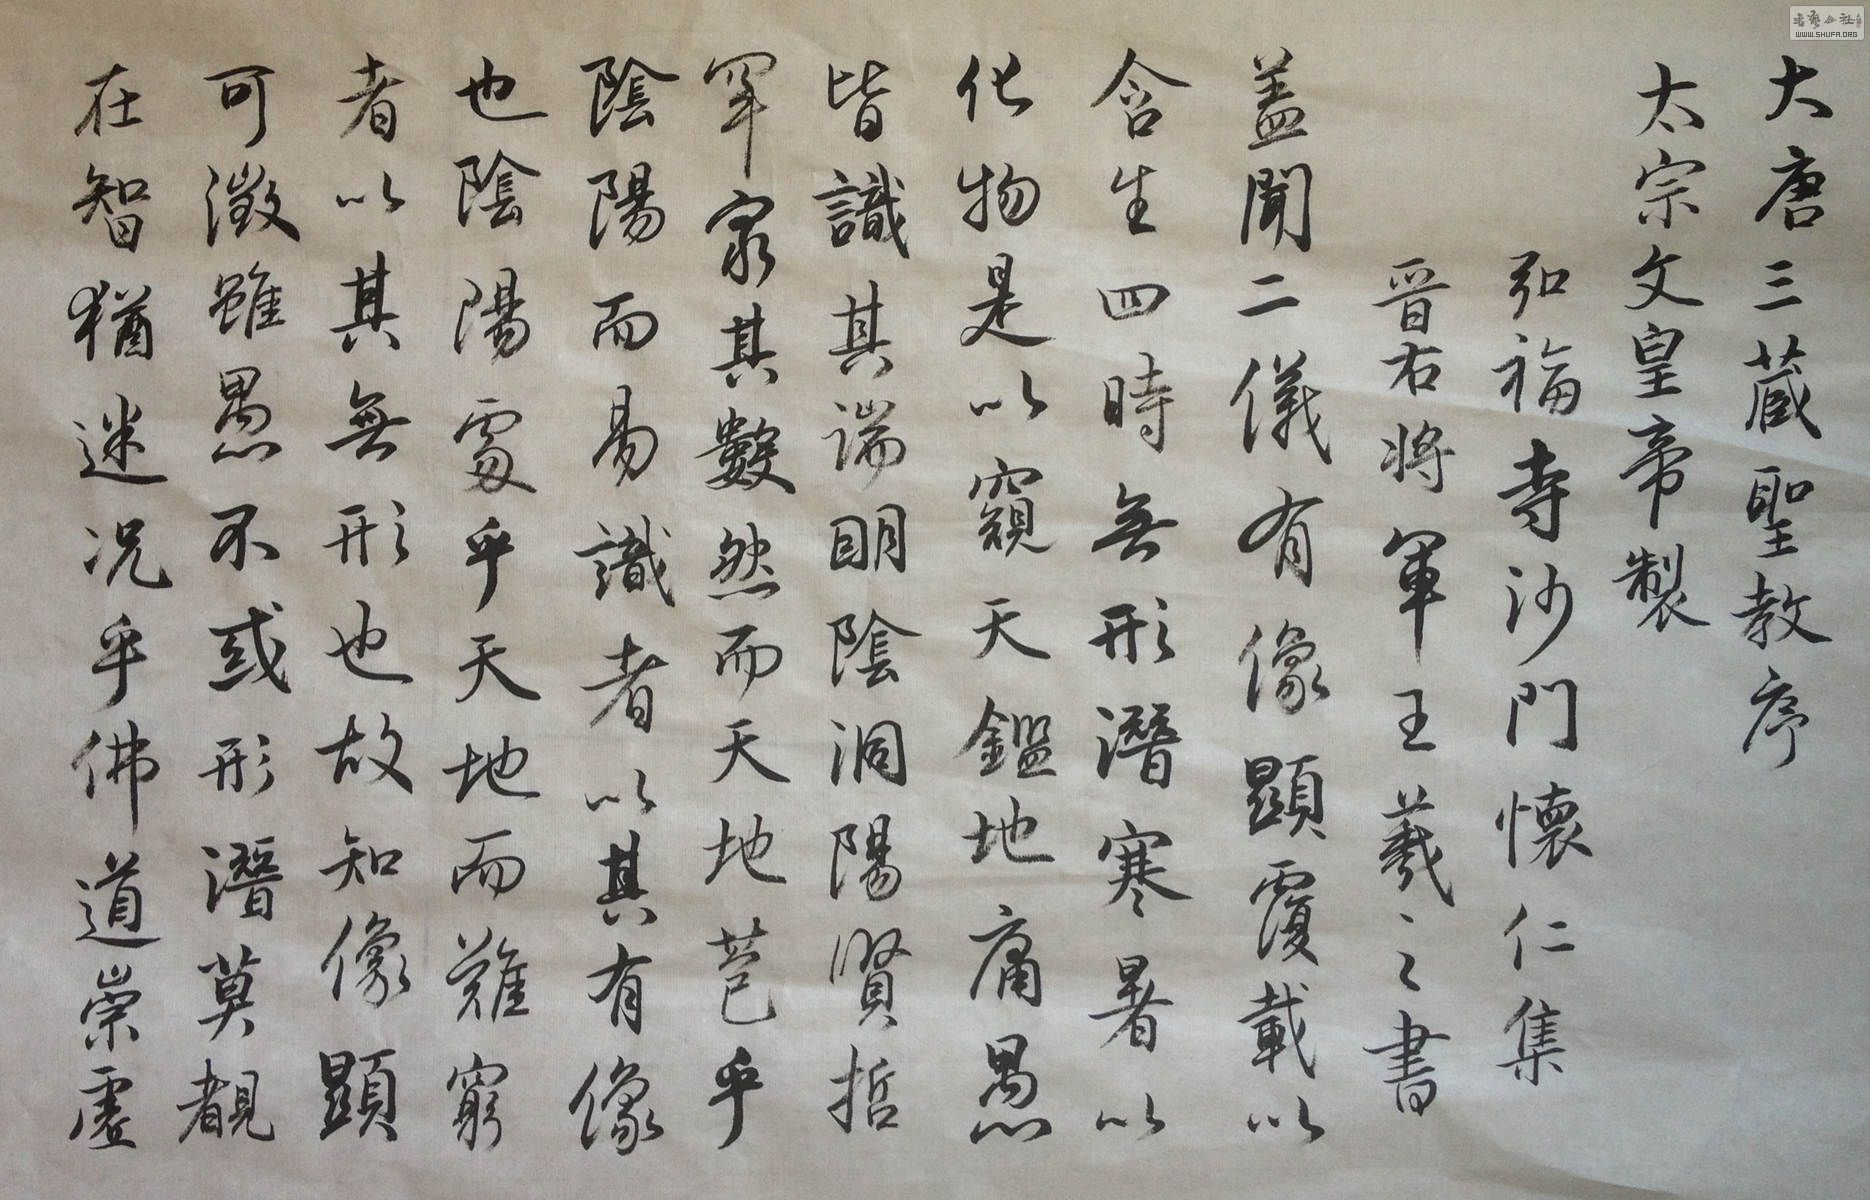 大唐三蔵聖教序
太宗文皇帝製
弘福寺沙門懷仁集
晋右将軍王羲之書
盖聞二儀有像顯覆載以
含生四時無形潛寒暑以
化物是以窺天鑑地庸愚
皆識其端明陰洞陽賢哲
罕窮其數然而天地苞乎
陰陽而易識者以其有像
也陰陽處乎天地而難窮
者以其無形也故知像顯
可徵雖愚不惑形潛莫覩
在智猶迷况乎佛道崇虚
書藝公社
WWW.SHUFA.ORG